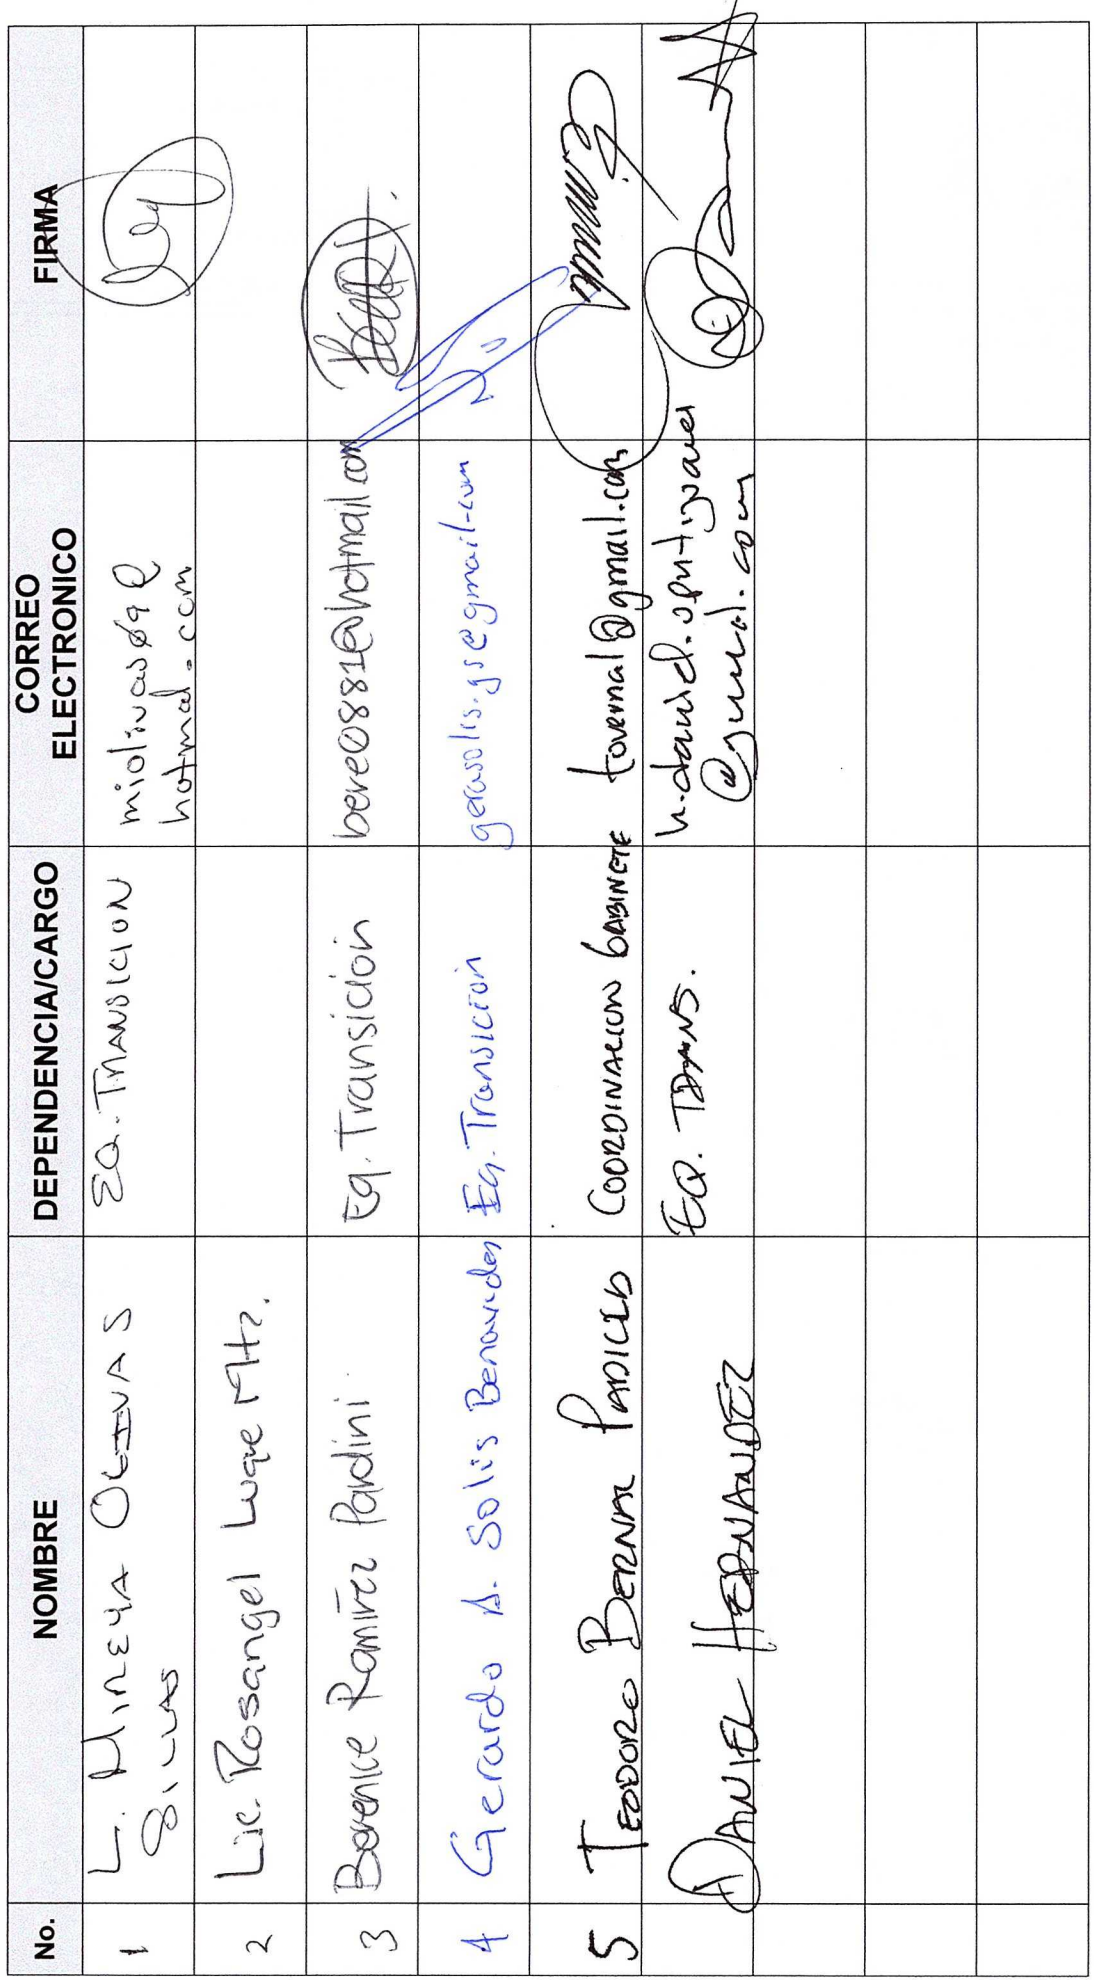 No. NOMBRE DEPENDENCIA/CARGO CORREO ELECTRONICO FIRMA
1 L. MIREYA OLIVAS EQ. TRANSICION miolivas09@
SILVAS hotmail.com
2 Lic. Rosangel Luque Mtz.
3 Berenice Ramírez Pardini Eq. Transición bere0881@hotmail.com
4 Gerardo A. Solis Benavides Eq. Transición gerasolis.gs@gmail.com
5 TEODORO BERNAL PADILLA COORDINACION GABINETE tovernal@gmail.com
DANIEL HERNANDEZ EQ. TRANS.
@gmail.com